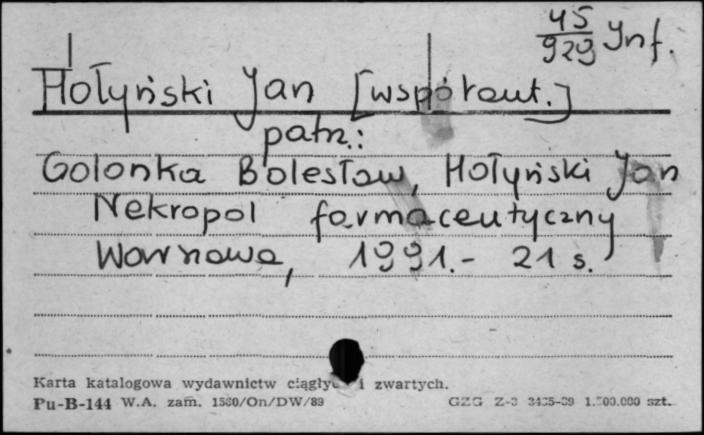 45
929 Inf.
Hołyński Jan [współaut.]
patrz:
Golonka Bolesław, Hołyński Jan
Nekropol farmaceutyczny
Warszawa, 1991.- 21 s.
Karta katalogowa wydawnictw ciągłych i zwartych.
Pu-B-144 W.A. zam. 1580/On/DW/89 GZG Z-3 3435-89 1.500.000 szt.